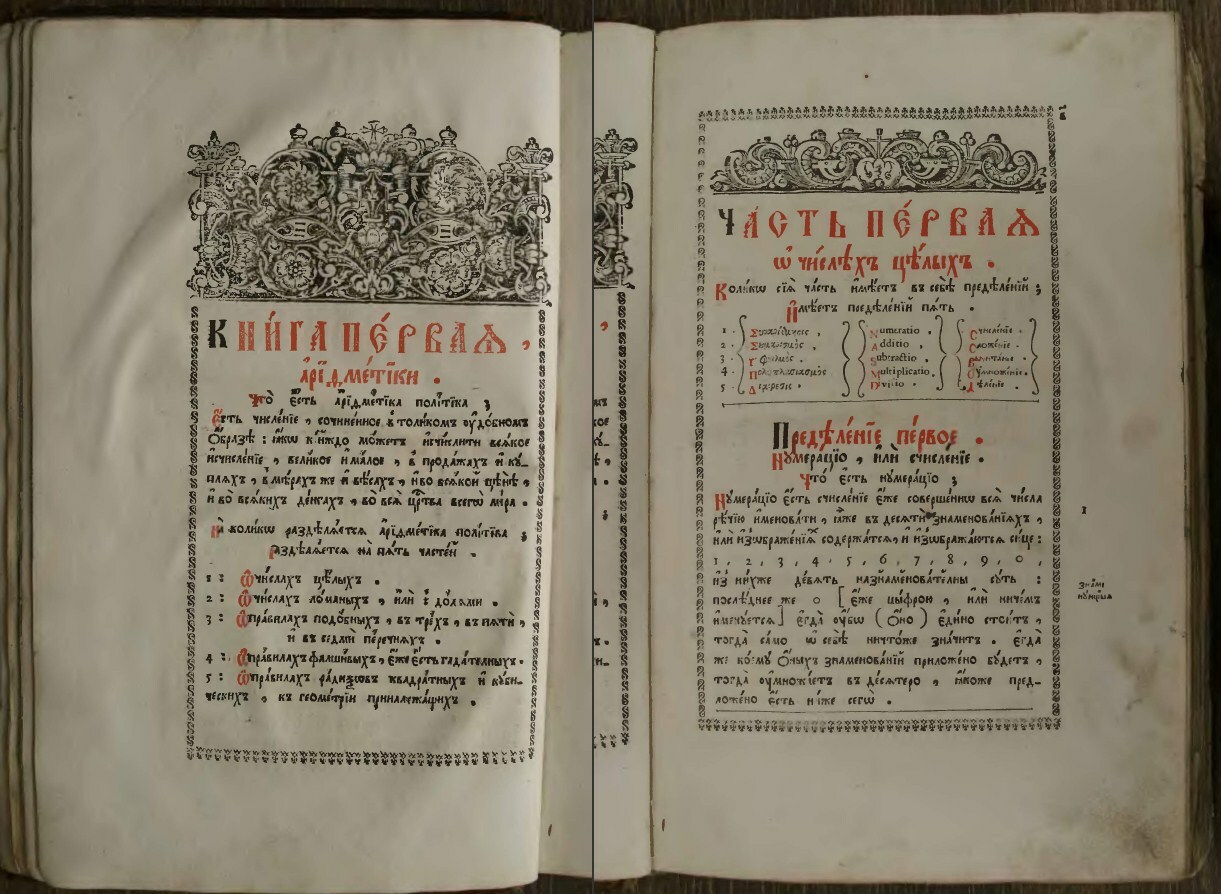 КНИ́ГА ПЕ́РВАѦ,
а҆рїѳме́тїки.
Что̀ є҆́сть а҆рїѳме́тїка полїті́ка;
Є҆́сть численїе, сочине́нное
Ѻ҆́бразѣ: ꙗ҆́кѡ кі́йждо мо́жетъ и҆счи́слити вся́кое
и҆счисле́нїе, вели́кое и҆ ма́лое, в̾ прода́жахъ и҆ кꙋ-
плѧхъ, в̾ мѣ́рахъ же и҆ вѣ́сахъ, и҆ во всѧ́кой цѣнѣ̀,
и҆ во всѧ́кихъ де́нгахъ, во всѧ̑ црⷭ҇тва всегѡ̀ мі́ра.
На̀ коли́кѡ раздѣлѧ́етсѧ а҆рїѳме́тїка полїті́ка;
Раздѣлѧ́етсѧ на̀ пѧ́ть часте́й.
1: Ѡ҆ чи́слахъ цѣ́лыхъ.
2: Ѡ҆ чи́слахъ ло́маныхъ, и҆лѝ с̾ до́лѧми.
3: Ѡ҆ пра́вилахъ подо́бныхъ, в̾ тре́хъ, в̾ пѧтѝ,
и҆ в̾ седмѝ пе́речнѧхъ.
4: Ѡ҆ пра́вилахъ фалши́выхъ, є҆́же є҆́сть гада́телныхъ.
5: Ѡ҆ пра́вилахъ ра́диѯѡвъ квадра́тныхъ и҆ кꙋби́-
ческихъ, къ геоме́трїи приналежа́щихъ.
1
ЧА́СТЬ ПЕ́РВАѦ
ѡ҆ чи́слѣхъ цѣ́лыхъ.
Коли́кѡ сїѧ̀ ча́сть и҆мѣ́етъ въ себѣ̀ предѣле́нїй;
И҆мѣ́етъ предѣле́нїй пѧ́ть.
1. Numeratio. Счисле́нїе.
2. Additio. Сложе́нїе.
3. Subtractio. Вычита́нїе.
4. Multiplicatio. Оу҆множе́нїе.
5. Divisio. Дѣле́нїе.
Предѣле́нїе пе́рвое.
Нꙋмера́цїо, и҆лѝ счисле́нїе.
Что̀ є҆́сть нꙋмера́цїо;
Нꙋмера́цїо є҆́сть счисле́нїе є҆́же соверше́ннѡ всѧ̑ чи́сла
рѣ́чїю и҆менова́ти, ꙗ҆̀же въ десѧтѝ знаменова́нїихъ,
и҆лѝ и҆зѡбраже́нїѧхъ содержа́тсѧ, и҆ и҆зѡбража́ютсѧ си́це:
1, 2, 3, 4, 5, 6, 7, 8, 9, 0,
и҆з̾ ни́хже де́вѧть назнаменова́телны сꙋ́ть:
послѣ́днее же 0 [є҆́же цы́фрою, и҆лѝ ничи́мъ
и҆менꙋ́етсѧ] є҆гда̀ оу҆́бѡ (ѻ҆́но) є҆ди́но стои́тъ,
тогда̀ са́мо ѡ҆ себѣ̀ ничто́же зна́читъ. Є҆гда̀
же коемꙋ̀ ѻ҆́ныхъ знаменова́нїй приложе́но бꙋ́детъ,
тогда̀ оу҆мно́житъ въ де́сѧтеро, ꙗ҆́коже пред-
ложе́но є҆́сть ни́же сегѡ̀.